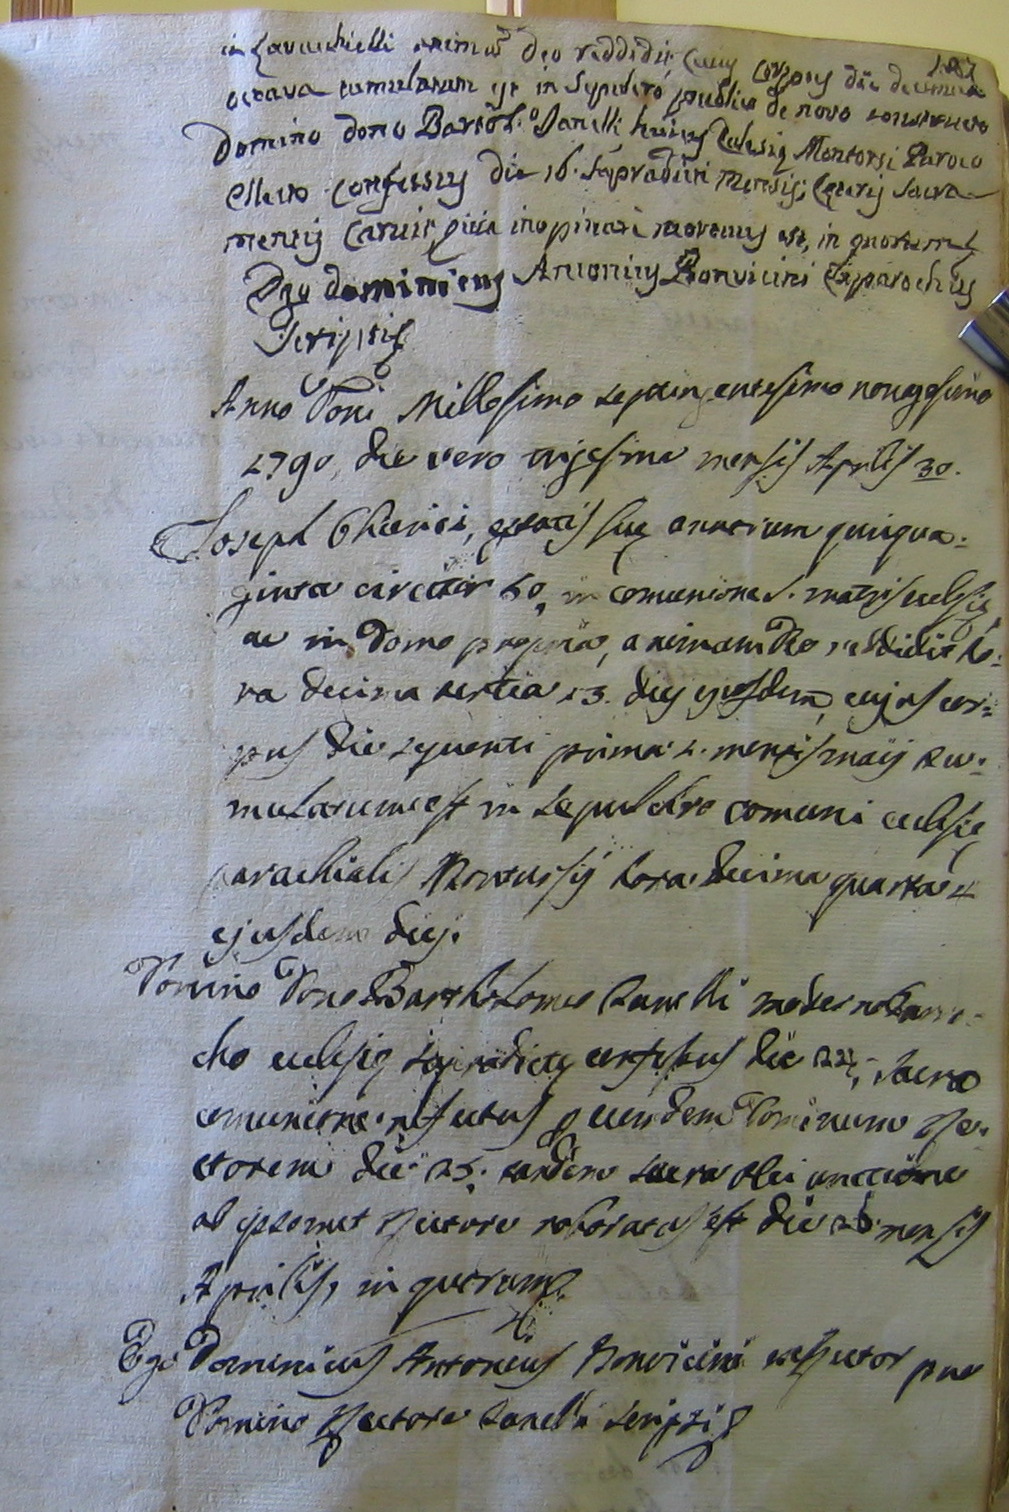 187
in Zavachielli animã deo reddidit Cuius Corpus die decima
octava tumulatum est in Sepulcro publico de novo constructo
Domino dono Bartol.º Zanelli huius Eclesię Montorsi Paroco
ellecto Confessus die 16. Supradicti mensis; Ceteris Sacra
mentis Caruit quia inopinata morte est, in quorum
Ego dominicus Antonius Bonvicini Exparochus
Scripsi
Anno Dñi Millesimo septingentesimo nonagesimo
1790, die vero trigesima mensis Aprilis 30.
Joseph Chierici, ętatis suę annorum quinqua-
ginta circiter 50, in comunione S. matris eclesię,
ac in Domo propria, animam Deo reddidit ho:
ra decima tertia 13. diey ejusdem, cujus cor:
pus die sequenti prima 1. mensis maij tu:
mulatum est in sepulchro comuni eclesię
parachialis Montursij hora decima quarta 14
ejusdem diej.
Domino Dono Bartholomeo Zanelli moderno Paro-
cho eclesię supradictę confessus die 22, sacra
comunione refectus p eundem Dominum Re-
ctorem die 25. tandem sacra olei unctione
ab ipsomet Rectore roboratus est die 26 mensis
Aprilis, in quorum
Ego Dominicus Antonius Bonvicini exRector pro
Domino Rectore Zanelli scripsi